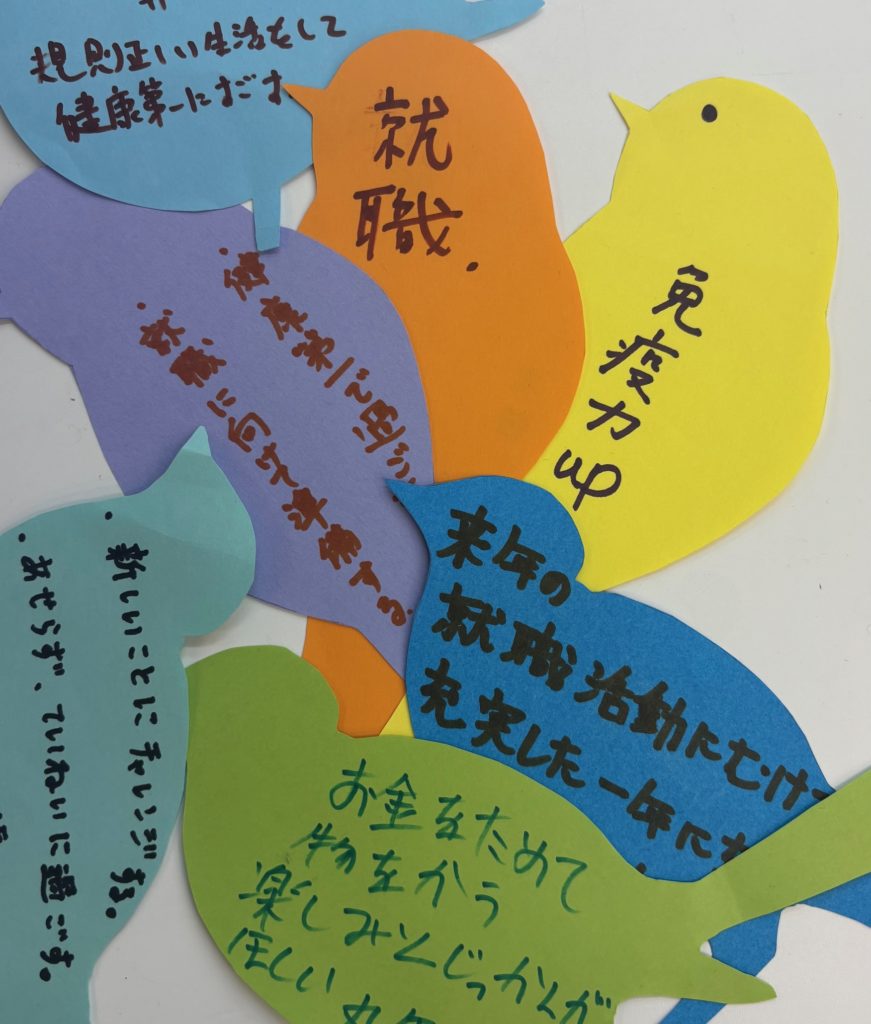 規則正しい生活をして
健康第一にすごす
就
職.
免疫力up
・健康第一で
・就職に向けて準備する。
来年の
就職活動にむけ
充実した一年に
・新しいことにチャレンジする。
・あせらず、ていねいに過ごす。
お金をためて
物をかう
楽しみとじっかんが
ほしい